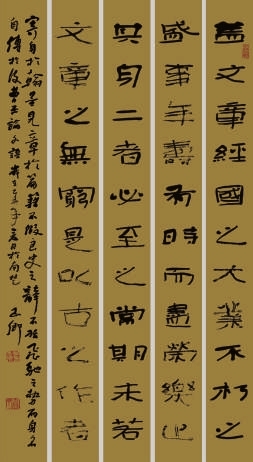 蓋文章經國之大業不朽之
盛事年壽有時而盡榮樂止
其身二者必至之常期未若
文章之無窮是以古之作者
寄身於翰墨見意於篇籍不假良史之辭不托飛馳之勢而聲名
自傳於後曹丕論文